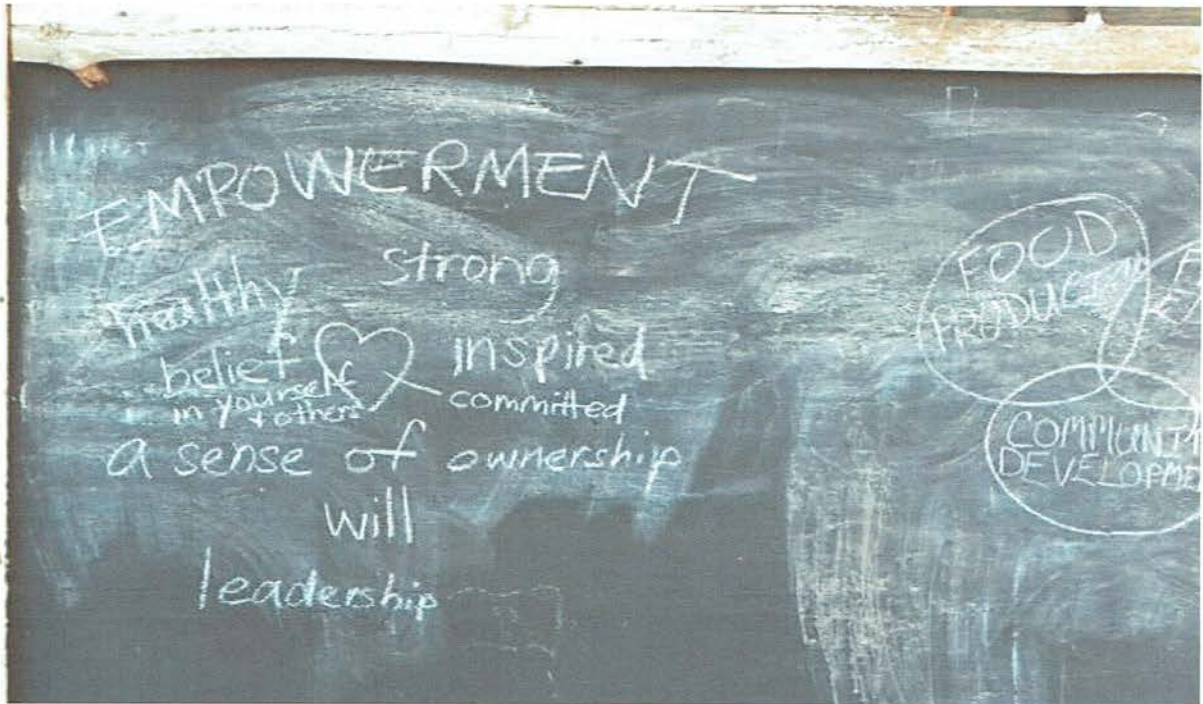 EMPOWERMENT
strong
healthy
inspired
belief
in yourself
+ others
committed
a sense of ownership
will
leadership
FOOD
PRODUCTION
COMMUNIT
DEVELOPME